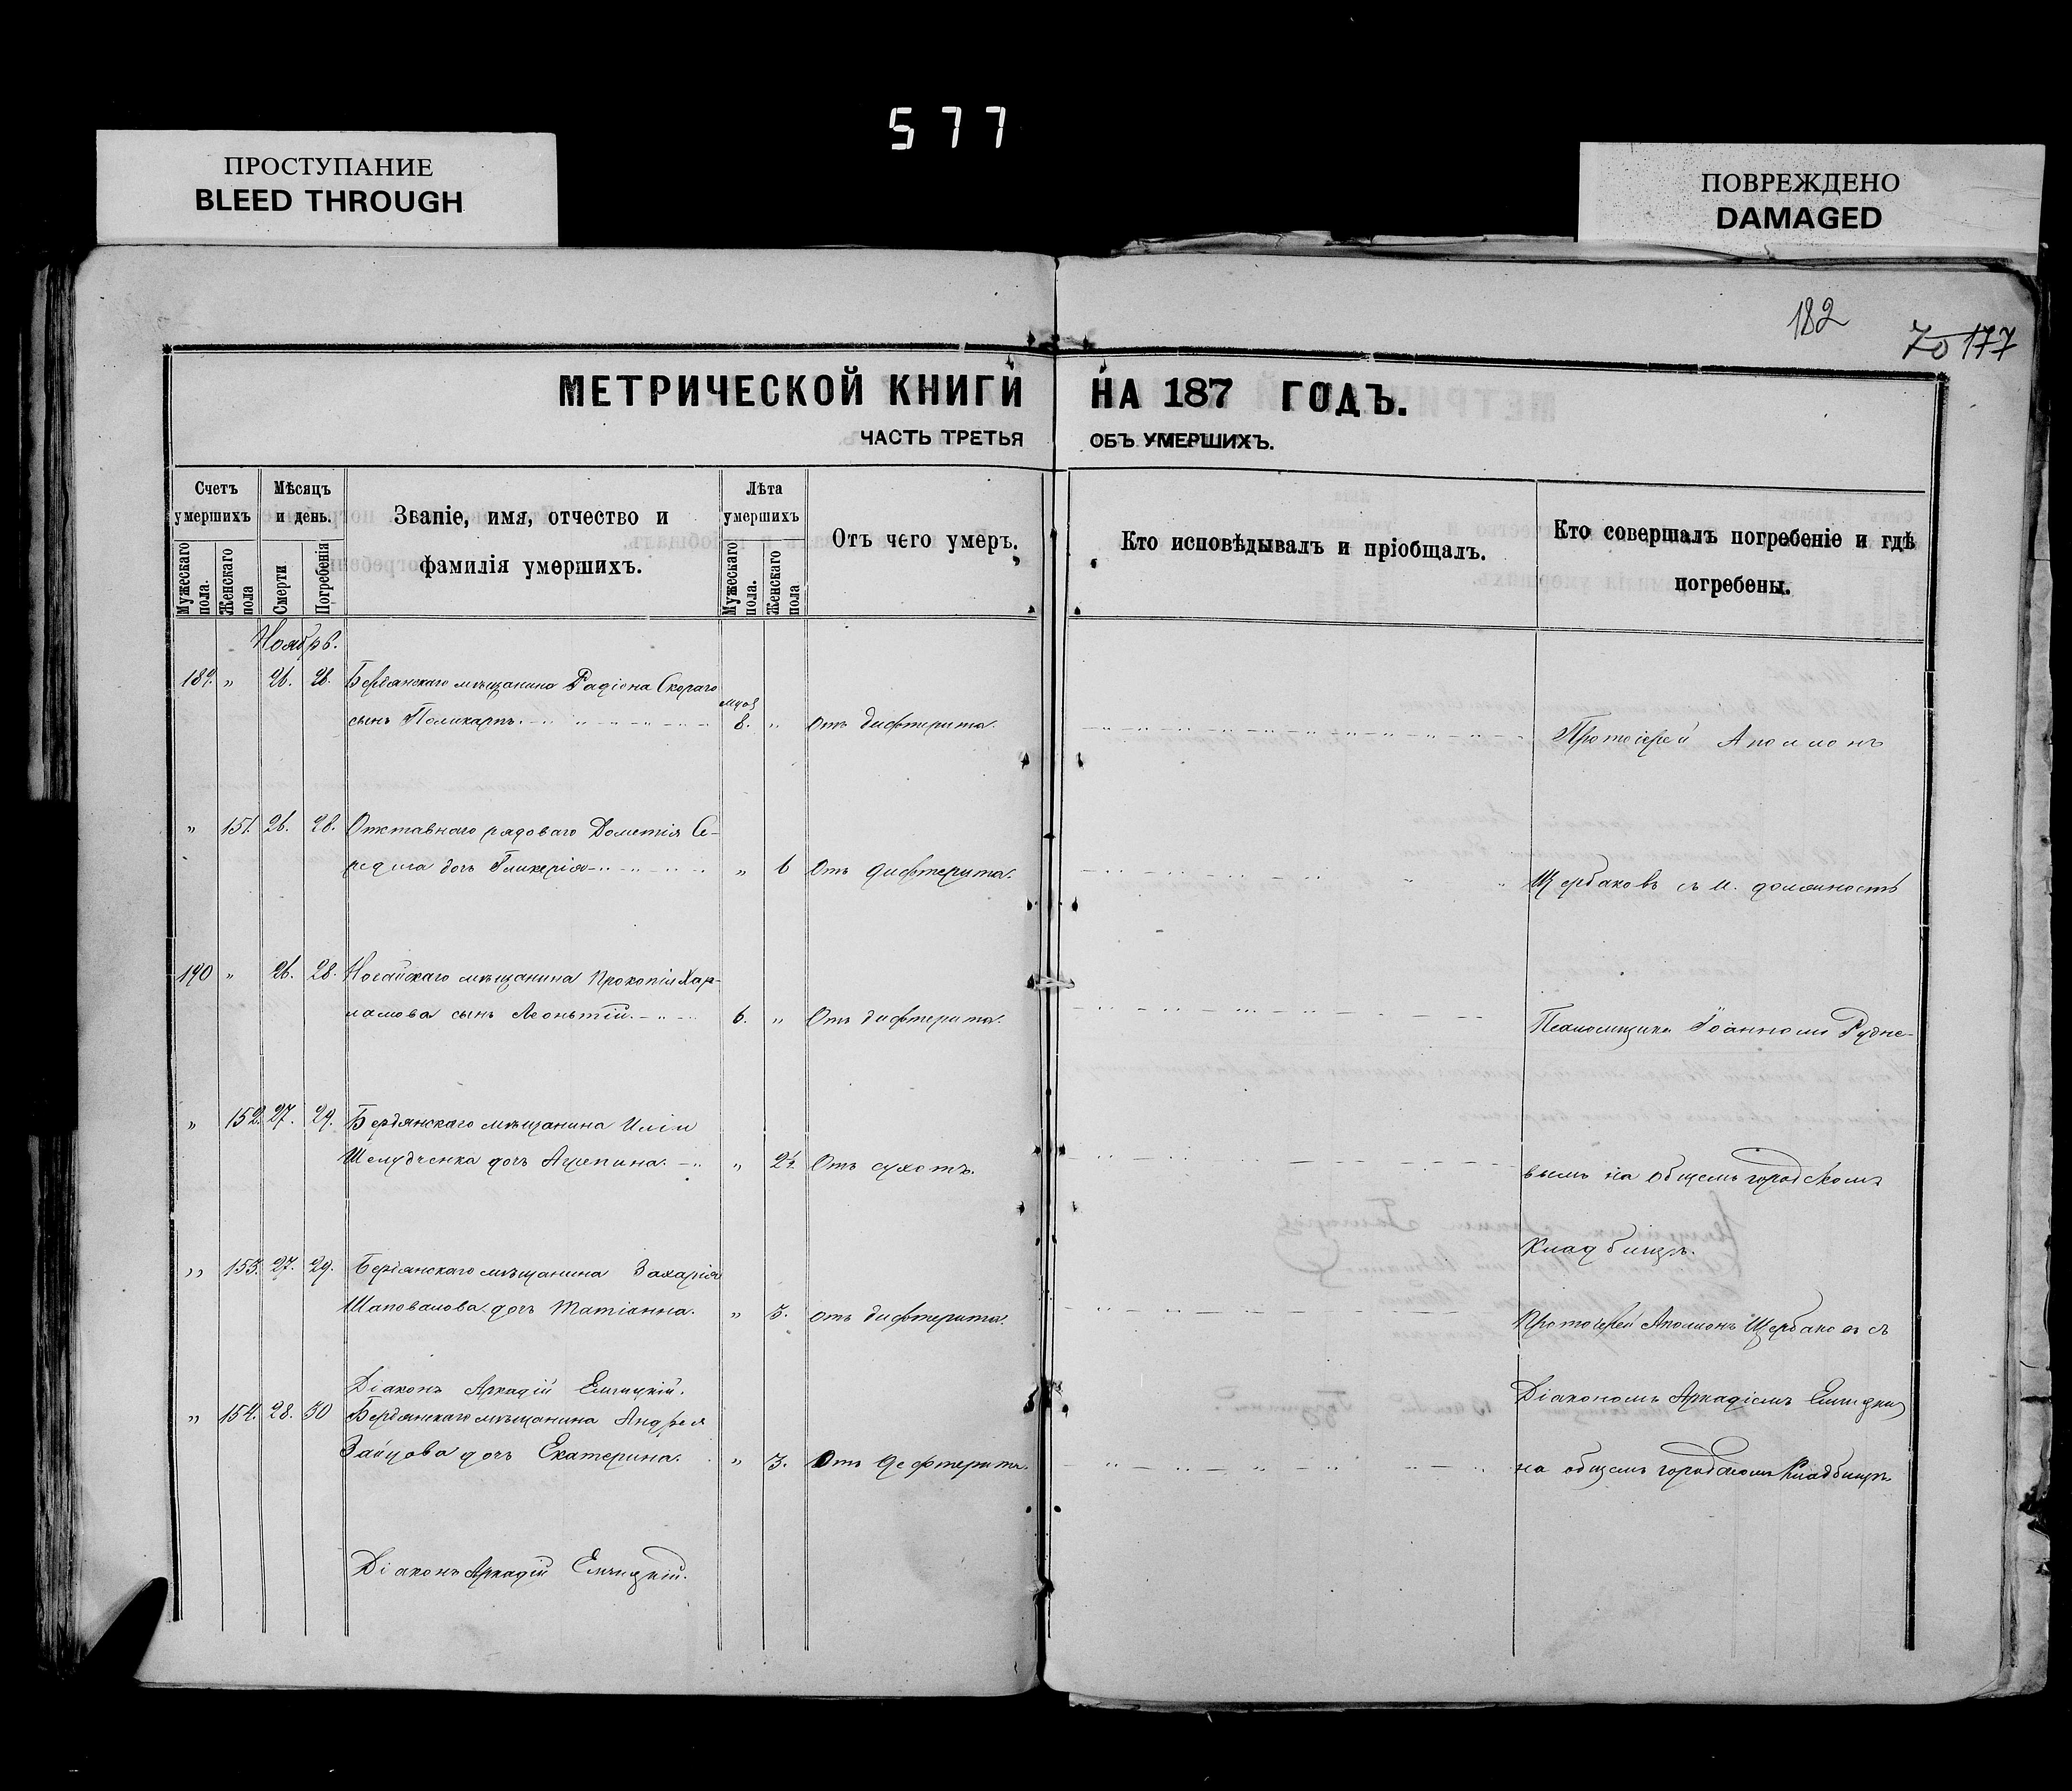 577
ПРОСТУПАНИЕ
BLEED THROUGH
ПОВРЕЖДЕНО
DAMAGED
182
70 177
МЕТРИЧЕСКОЙ КНИГИ НА 187 ГОДЪ.
ЧАСТЬ ТРЕТЬЯ ОБЪ УМЕРШИХЪ.
Счетъ умершихъ
Мужескаго пола.
Женскаго пола
Мѣсяцъ и день.
Смерти
Погребенія
Званіе, имя, отчество и
фамилія умершихъ.
Лѣта умершихъ
Мужескаго пола.
Женскаго пола
Отъ чего умеръ.
Кто исповѣдывалъ и пріобщалъ.
Кто совершалъ погребеніе и гдѣ
погребены.
Ноябрь.
189. „ 26. 28. Бердянскаго мѣщанина Радіона Скораго
сынъ Поликарпъ. 8. „ Отъ дифтерита. Протоіерей Аполлонъ
„ 151. 26. 28. Отставнаго рядоваго Дометія Се-
реды дочь Гликерія „ 6 Отъ дифтерита. Щербаковъ съ И. должность
190 „ 26. 28. Ногайскаго мѣщанина Прокопія Хар-
ламова сынъ Леонтій. 6. „ Отъ дифтерита. Псаломщика Іоанномъ Рудне-
„ 152. 27. 29. Бердянскаго мѣщанина Иліи
Шелудченка дочь Агрепина. „ Отъ сухотъ. вымъ на общемъ городскомъ
кладбищѣ.
„ 153. 27. 29. Бердянскаго мѣщанина Захарія
Шаповалова дочь Татіанна. „ 3. отъ дифтерита. Протоіерей Аполлонъ Щербаковъ съ
Діаконъ Аркадій Емчицкій. Діакономъ Аркадіемъ
„ 154. 28. 30 Бердянскаго мѣщанина Андрея
Зайцова дочь Екатерина. „ 3. Отъ дефтерита. на общемъ городскомъ кладбищѣ.
Діаконъ Аркадій Емчицкій.